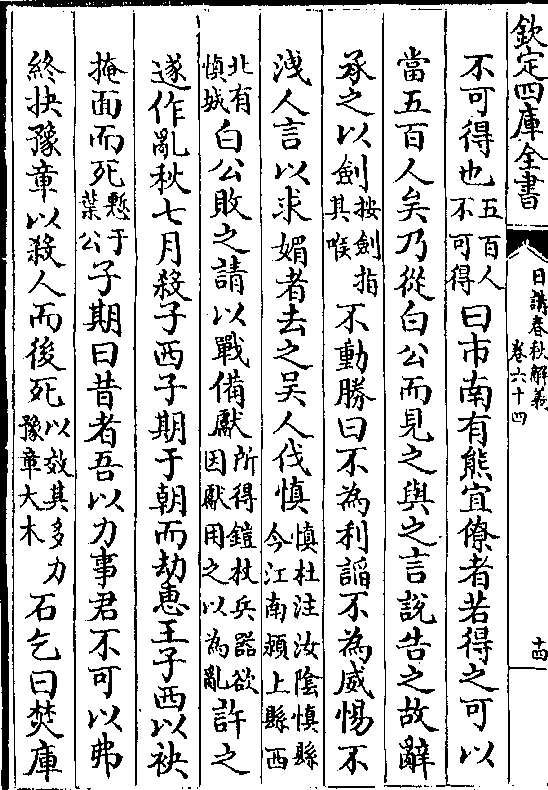 欽定四庫全書
日講春秋解義
卷六十四
十四
不可得也五百人不可得曰市南有熊宜僚者若得之可以
當五百人矣乃從白公而見之與之言說告之故辭
承之以劍按劍指其喉不動勝曰不為利謟不為威惕不
洩人言以求媚者去之吳人伐慎慎杜注汝陰慎縣今江南潁上縣西
北有慎城白公敗之請以戰備獻所得鎧杖兵器欲因獻用之以為亂許之
遂作亂秋七月殺子西子期于朝而劫惠王子西以袂
掩面而死慙于葉公子期曰昔者吾以力事君不可以弗
終抉豫章以殺人而後死以效其多力豫章大木石乞曰焚庫